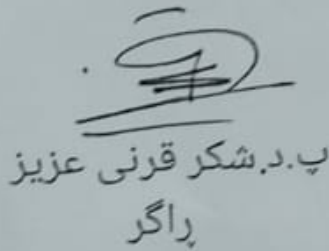 پ.د.شکر قرنی عزیز
ڕاگر